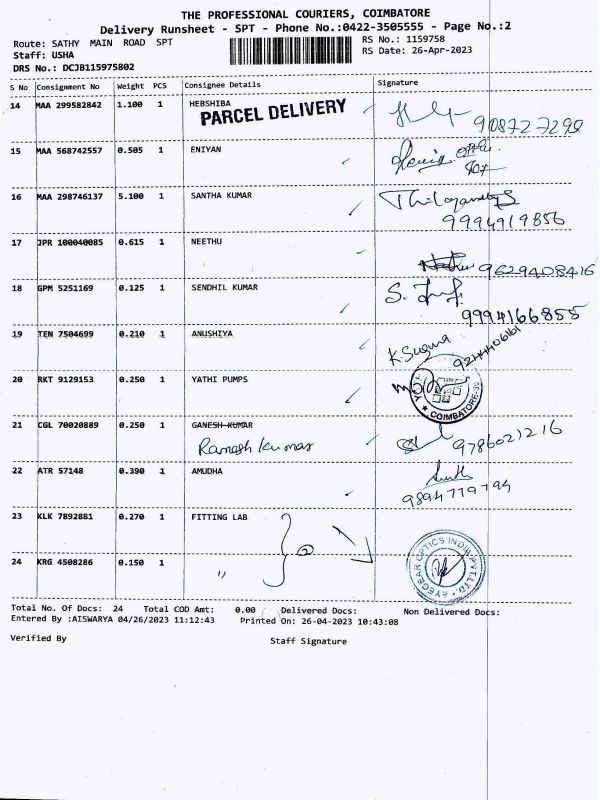 THE PROFESSIONAL COURIERS, COIMBATORE
Delivery Runsheet - SPT - Phone No.:0422-3505555 - Page No.:2
Route: SATHY MAIN ROAD SPT RS No.: 1159758
Staff: USHA RS Date: 26-Apr-2023
DRS No.: DCJB115975802
S No Consignment No Weight PCS Consignee Details Signature
14 MAA 299582842 1.100 1 HEBSHIBA
PARCEL DELIVERY
908727290
15 MAA 568742557 0.505 1 ENIYAN
16 MAA 298746137 5.100 1 SANTHA KUMAR
9994919856
17 JPR 100040085 0.615 1 NEETHU
9629408416
18 GPM 5251169 0.125 1 SENDHIL KUMAR
9994166855
19 TEN 7504699 0.210 1 ANUSHIYA
K Suguna
9244406161
20 RKT 9129153 0.250 1 YATHI PUMPS
COIMBATORE
21 CGL 70020889 0.250 1 GANESH KUMAR
Ramesh Kumar 9786021216
22 ATR 57148 0.390 1 AMUDHA
9894779794
23 KLK 7892881 0.270 1 FITTING LAB
24 KRG 4508286 0.150 1 "
AYEGEAR OPTICS INDIA PVT LTD
Total No. Of Docs: 24 Total COD Amt: 0.00 Delivered Docs: Non Delivered Docs:
Entered By :AISWARYA 04/26/2023 11:12:43 Printed On: 26-04-2023 10:43:08
Verified By Staff Signature